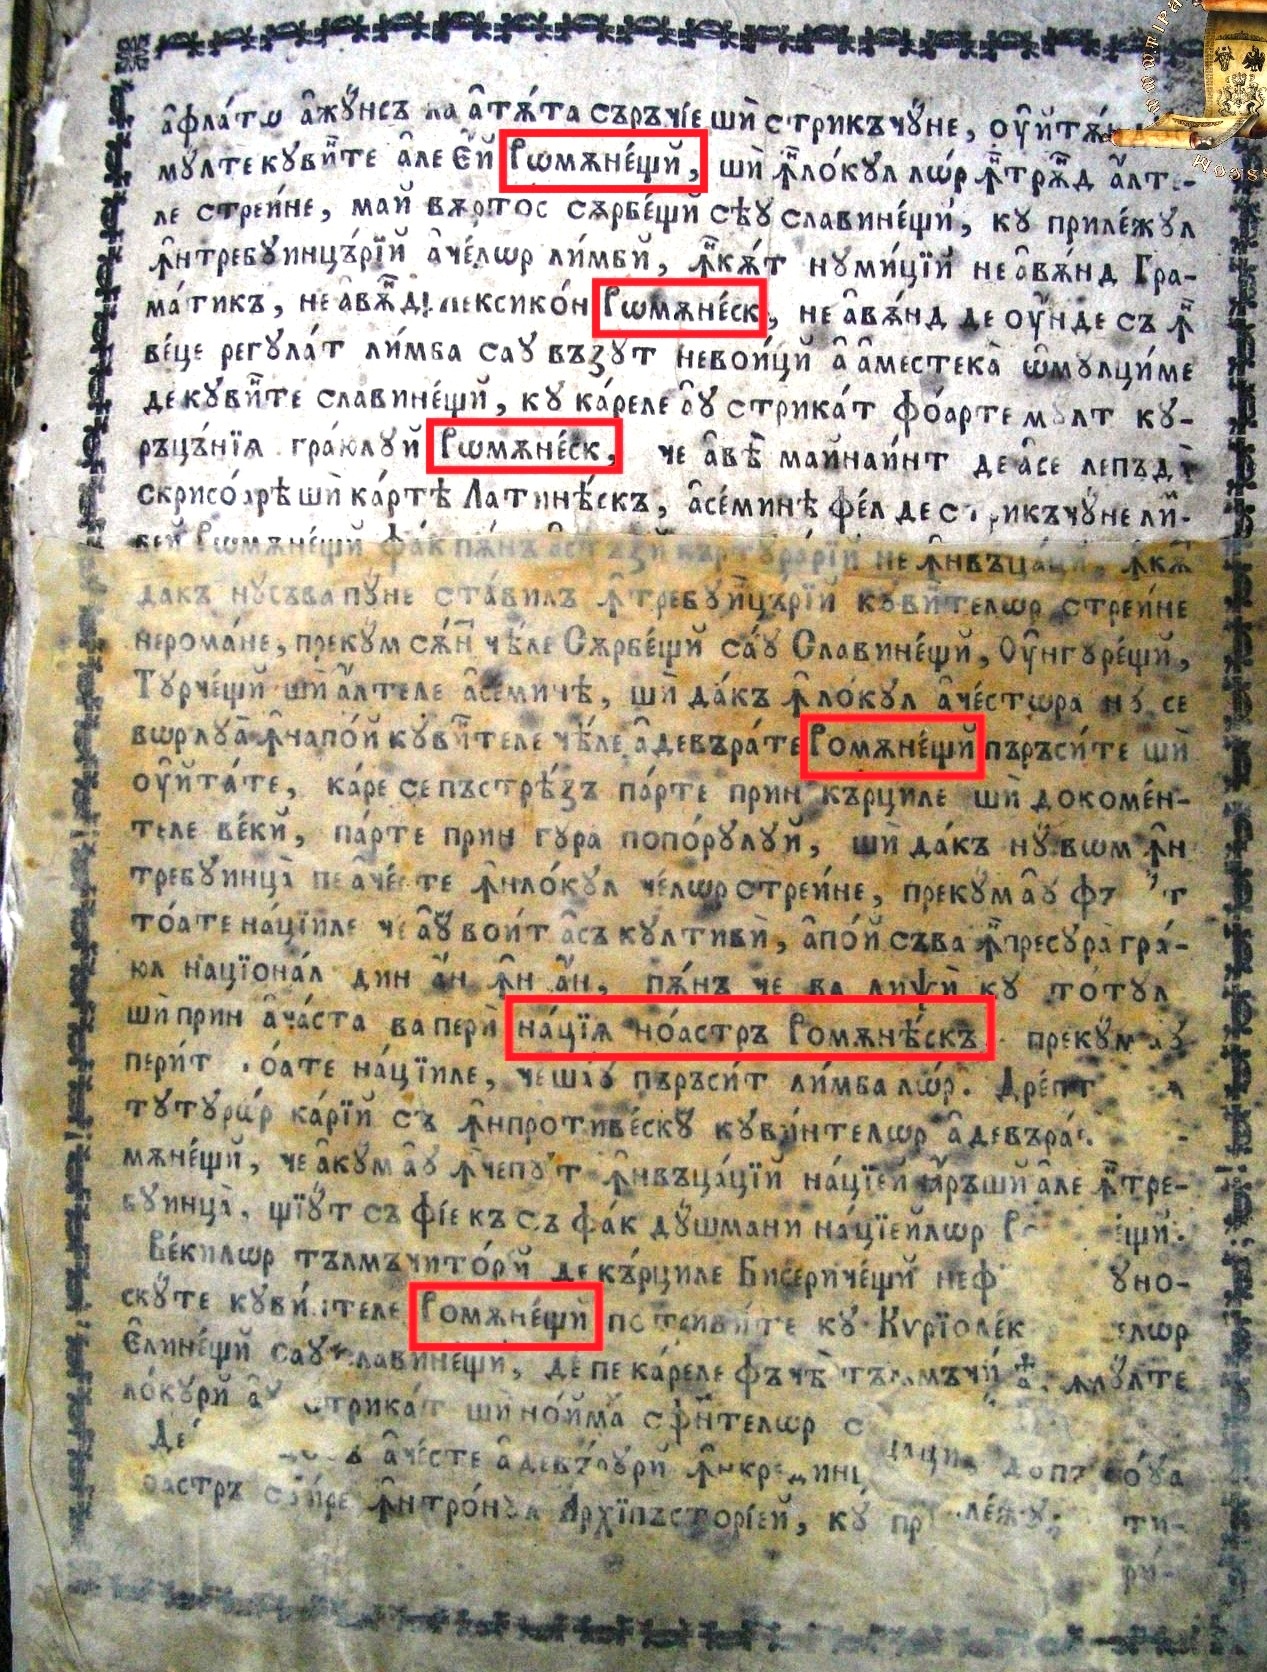 а҆фла́тꙋ а҆жꙋ́нсъ ла а҆тѫ́та съръчі́е шѝ стрикъчꙋ́не, ᲂу҆йтѫ́н
мꙋ́лте кꙋви́нте а҆ле е҆́й Рѡмѫне́щй, шѝ ꙟ҆ло́кꙋл лѡ́р ꙟ҆трѫ́нд а҆́лт
ле стреи́не, май вѫртос сѫрбе́щй сѣꙋ славине́щи, кꙋ приле́жꙋл
ꙟ҆нтребꙋинцъ́рїй а҆че́лѡр ли́мбй, ꙟ҆кѫ́т нꙋми́цїй не а҆вѫ́нд Гра-
ма́тикъ, не а҆вѫ́нд лексико́н Рѡмѫне́ск, не а҆вѫ́нд де ᲂу҆́нде съ ꙟ҆н
ве́це регꙋла́т ли́мба саꙋ възꙋт невои́цй а҆ а҆местека̀ ѡ҆мꙋлци́ме
де кꙋви́нте славине́щй, кꙋ ка́реле а҆ꙋ стрика́т фо́арте мꙋлт кꙋ-
ръцъ́нїѧ гра́юлꙋй Рѡмѫне́ск, че а҆вѣ̀ майнаи́нт де а҆се лепъдà
скрисо́арѣ шѝ ка́ртѣ Латинѣ́скъ, а҆се́минѣ фе́л де стрикъчꙋ́не ли́м-
бей Рѡмѫне́щй фа́к пѫ́нъ а҆стъзй къртꙋрарїй не ꙟ҆нвъца́ци, ꙟ҆кѫ̀
дакъ нꙋсъва пꙋ́не ста́вилъ ꙟ҆требꙋи́нцърїй кꙋви́нтелѡр стреи́не
нерома́не, прекꙋ́м сѫ́нт чѣ́ле Сѫрбе́щй са́ꙋ Славине́щй, Оу҆нгꙋре́щй,
Тꙋрче́щй шѝ а҆́лтеле а҆се́мичѣ, шѝ да́къ ꙟ҆ло́кꙋл а҆че́стѡра нꙋ се
вѡр лꙋа̀ ꙟ҆напо́й кꙋви́нтеле чѣ́ле а҆девъра́те Ромѫне́щй пъръси́те шѝ
ᲂу҆йта́те, ка́ре се пъстрѣ́зъ па́рте прин кърциле шѝ докоме́н-
теле ве́кй, па́рте прин гꙋра попо́рꙋлꙋй, шѝ да́къ нꙋ́ вѡм ꙟ҆н
требꙋинца̀ пе а҆че́сте ꙟ҆нло́кꙋл че́лѡр стреи́не, прекꙋ́м а҆ꙋ
то́ате на́цїиле че а҆ꙋ вои́т а҆съ кꙋлтиви̂, а҆по́й съва ꙟ҆мпресꙋра̀ гра́-
юл нацїона́л дин а҆́н ꙟ҆н а҆́н, пѫ́нъ че ва липси̂ кꙋ то́тꙋл
шѝ прин а҆ча́ста ва пери̂ на́цїѧ ноа́стръ Ромѫнѣ́скъ прекꙋ́м аꙋ
пери́т тоате на́цїиле, че шаꙋ пъръси́т ли́мба лѡ́р. Дре́пт
тꙋтꙋрѡ́р ка́рїй съ ꙟ҆нпротиве́скꙋ кꙋви́нтелѡр а҆девъра́
мѫне́щй, че а҆кꙋ́м а҆ꙋ ꙟ҆чепꙋ́т ꙟ҆нвъца́цїй на́цїей і҆аръшй а҆ле ꙟ҆нтре-
бꙋинца̀, щїꙋ́т съ фі́е къ съ фа́к дꙋшмани на́цїей лѡр
Ве́килѡр тълмъчито́рй де къ́рциле Бисериче́щй неф ꙋно-
скꙋте кꙋви́нтеле Ромѫне́щй потриви́те кꙋ Кѵрїоле́к елѡр
Є҆лине́щй саꙋ славине́щи, де пе ка́реле фъчѣ̀ тълмъчи́
ло́кꙋрй а҆ꙋ стрика́т шѝ но́йма сфи́нтелѡр
а҆че́сте а҆девъ́рꙋрй ꙟ҆нкредин
оастръ ꙟ҆нтро́нꙋл А҆рхїпъсторі́ей, кꙋ